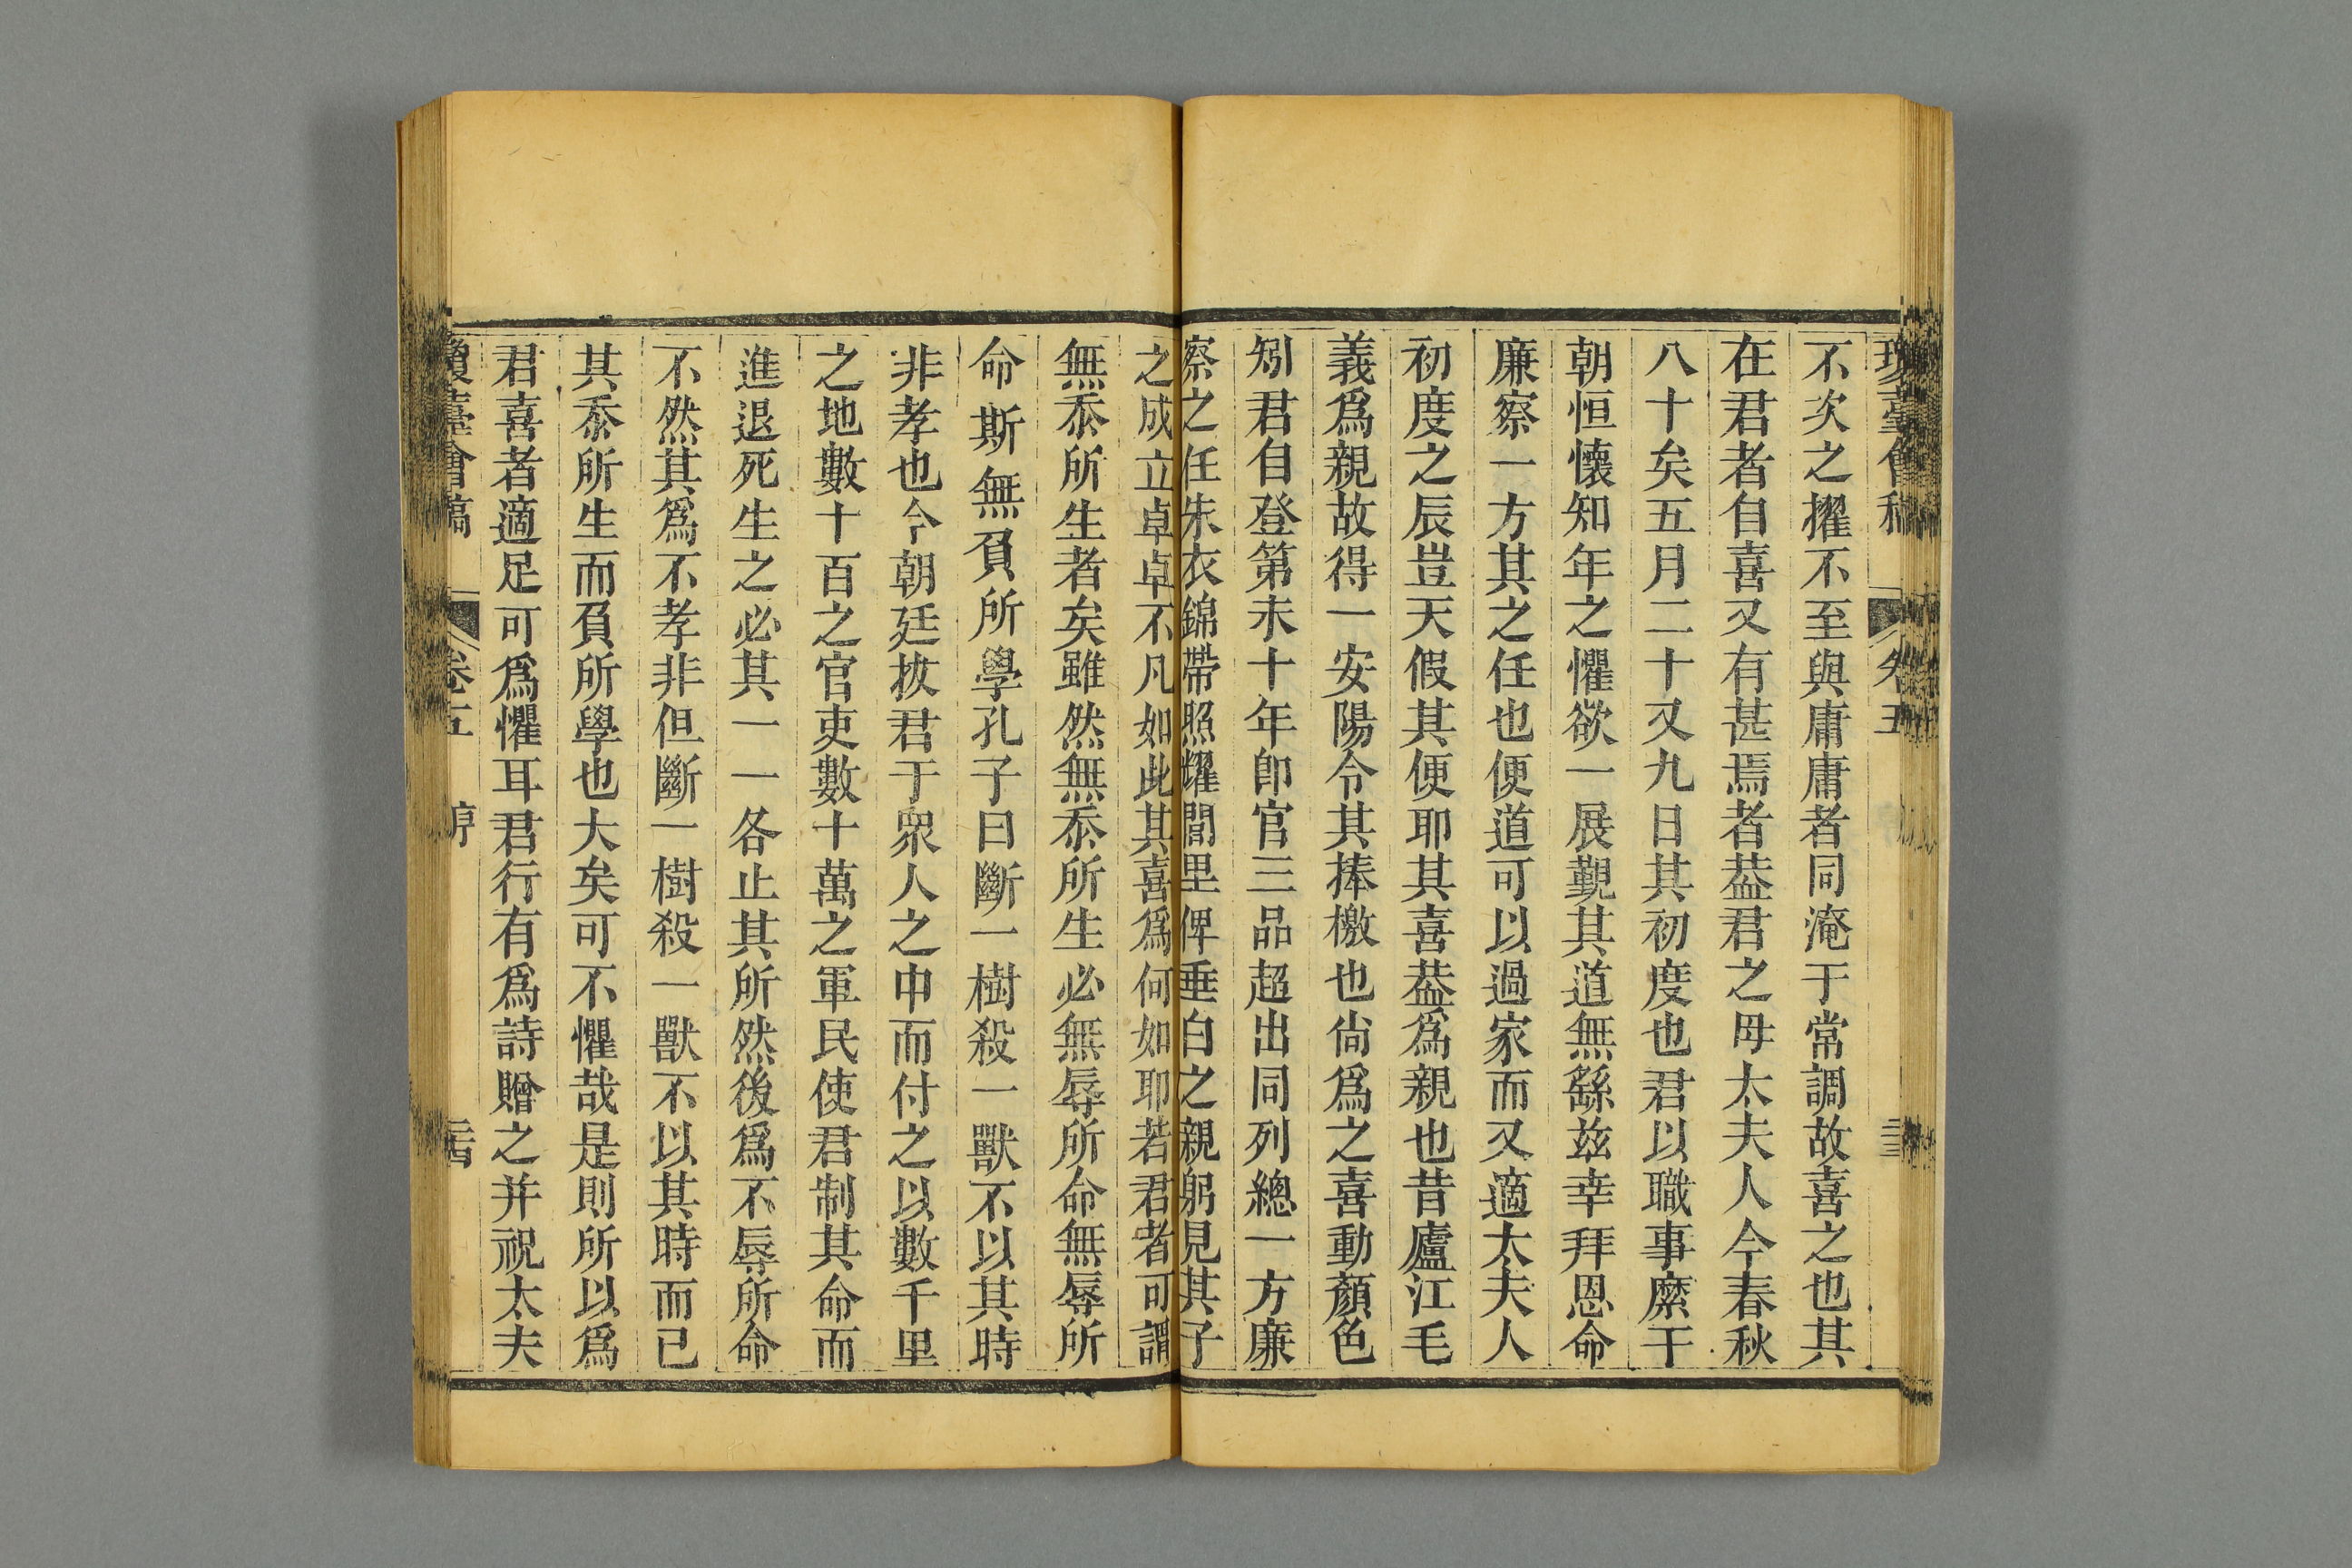 不次之擢不至與庸庸者同淹于常調故喜之也其
在君者自喜又有甚焉者葢君之母太夫人今春秋
八十矣五月二十又九日其初度也君以職事縻于
朝恒懷知年之懼欲一展覲其道無繇玆幸拜恩命
廉察一方其之任也便道可以過家而又適太夫人
初度之辰豈天假其便耶其喜葢爲親也昔廬江毛
義爲親故得一安陽令其捧檄也尙爲之喜動顏色
矧君自登第未十年卽官三品超出同列總一方廉
察之任朱衣錦帶照耀閭里俾垂白之親躬見其子
之成立卓卓不凡如此其喜爲何如耶若君者可謂
無忝所生者矣雖然無忝所生必無辱所命無辱所
命斯無負所學孔子曰斷一樹殺一獸不以其時
非孝也今朝廷拔君于衆人之中而付之以數千里
之地數十百之官吏數十萬之軍民使君制其命而
進退死生之必其一一各止其所然後爲不辱所命
不然其爲不孝非但斷一樹殺一獸不以其時而已
其忝所生而負所學也大矣可不懼哉是則所以爲
君喜者適足可爲懼耳君行有爲詩贈之并祝太夫
瓊臺會稿 卷五 序